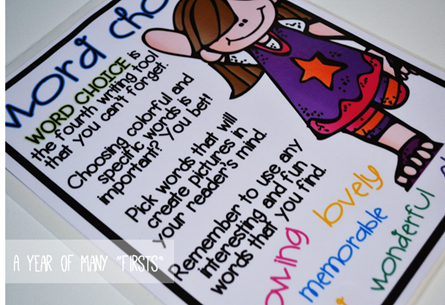 word cho
WORD CHOICE is
the fourth writing tool
that you can't forget.
Choosing colorful and
specific words is
important? You bet!
Pick words that will
create pictures in
your reader's mind.
Remember to use any
interesting and fun
words that you find.
owing lovely
memorable
wonderful
A YEAR OF MANY "FIRSTS"